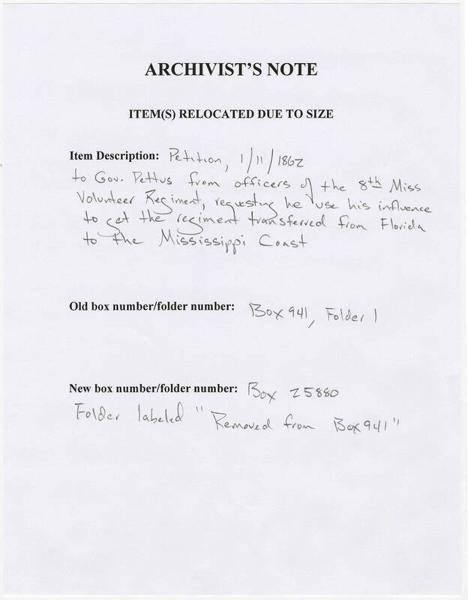 ARCHIVIST'S NOTE
ITEM(S) RELOCATED DUE TO SIZE
Item Description: Petition, 1/11/1862
to Gov. Pettus from officers of the 8th Miss
Volunteer Regiment, requesting he use his influence
to get the regiment transferred from Florida
to the Mississippi Coast
Old box number/folder number: Box 941, Folder 1
New box number/folder number: Box 25880
Folder labeled "Removed from Box 941"